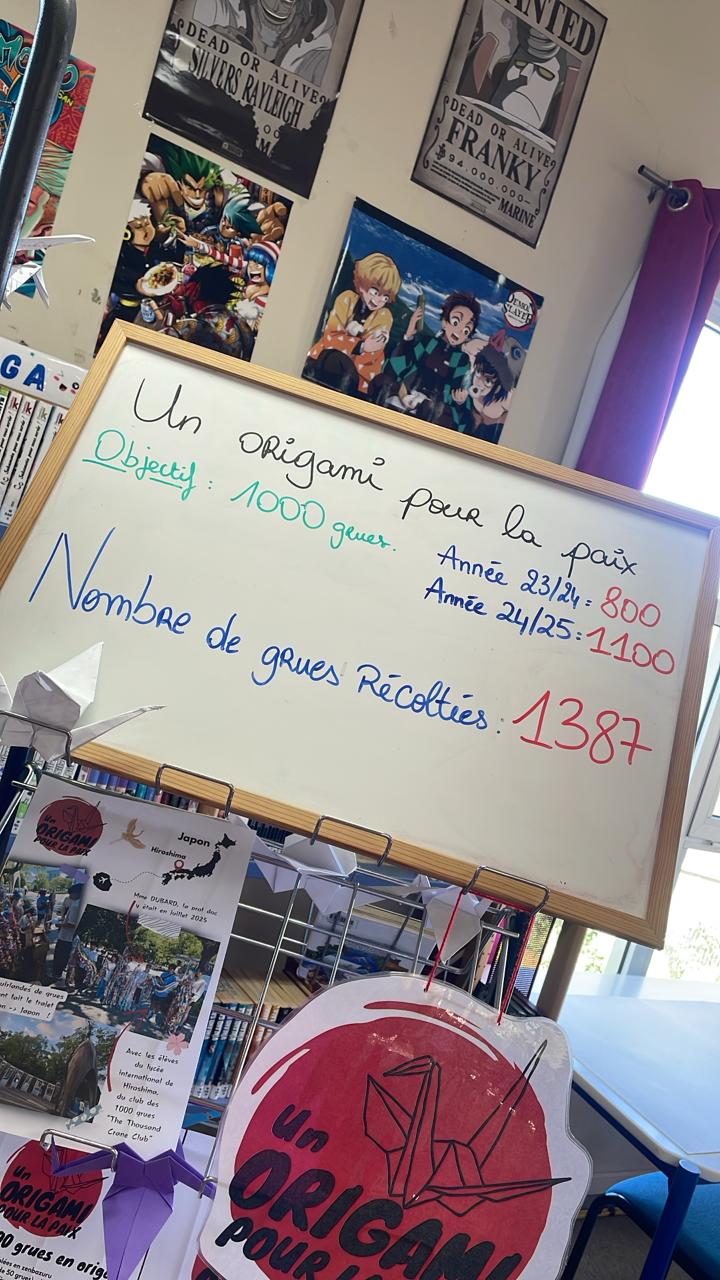 WANTED
DEAD OR ALIVE
SILVERS RAYLEIGH
DEAD OR ALIVE
FRANKY
94.000.000-
MARINE
DEMON
SLAYER
GA
Un origami pour la paix
Objectif : 1000 grues.
Année 23/24 : 800
Année 24/25 : 1100
Nombre de grues Récoltiés : 1387
Un
ORIGAMI
POUR LA PAIX
Japon
Hiroshima
Mme DUBARD, la prof doc
y était en juillet 2025
guirlandes de grues
ont fait le trajet
-> Japon !
Avec les élèves
du lycée
international de
Hiroshima,
du club des
1000 grues
"The Thousand
Crane Club"
Un
ORIGAMI
POUR LA PAIX
00 grues en orig
en zenbazuru
de 50 grues
Un
ORIGAMI
POUR L